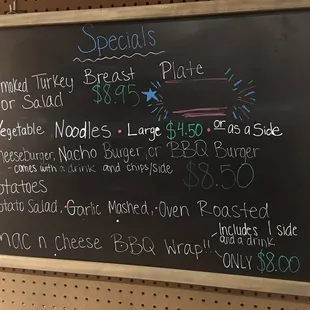 Specials
moked Turkey Breast Plate
or Salad $8.95
Vegetable Noodles • Large $4.50 • or as a Side
heeseburger, Nacho Burger, or BBQ Burger
- comes with a drink and chips/side $8.50
otatoes
otato Salad, • Garlic Mashed, • Oven Roasted
mac n cheese BBQ Wrap!! Includes 1 side
and a drink
ONLY $8.00